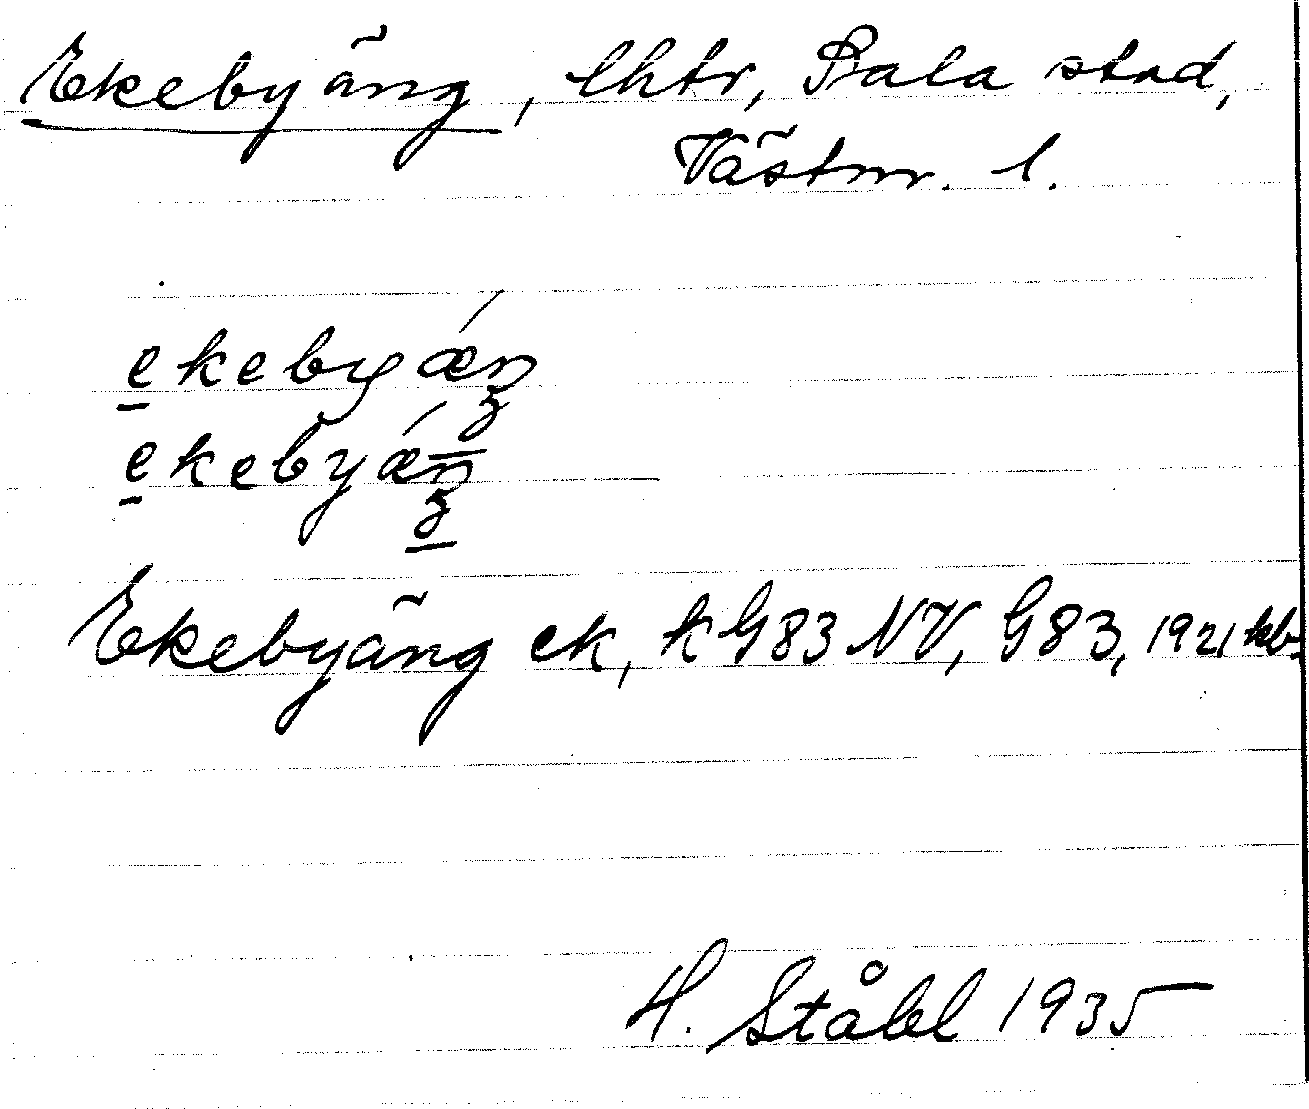 Ekebyäng, lhtr, Sala stad,
Västm. l.
ekebyǽŋ
ekebyǽŋ
Ekebyäng ek, k G83 NV, G83, 1921 kb.
H. Ståhl 1935